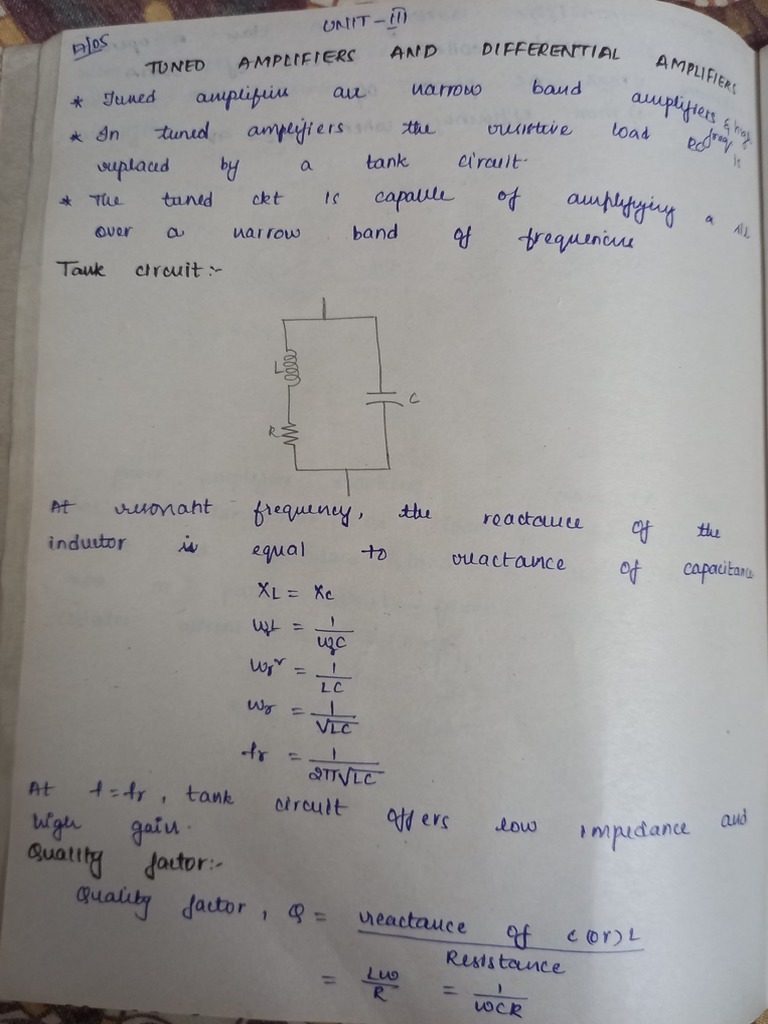 UNIT-III
A/05
TUNED AMPLIFIERS AND DIFFERENTIAL AMPLIFIERS
* Tuned amplifiers are narrow band amplifiers & high freq
* In tuned amplifiers the resistive load Rc is
replaced by a tank circuit.
* The tuned ckt is capable of amplifying a
over a narrow band of frequencies
Tank circuit:-
L
C
R
At resonant frequency, the reactance of the
inductor is equal to reactance of capacitance
XL = Xc
ωrL = 1/ωrC
ωr² = 1/LC
ωr = 1/√LC
fr = 1/2π√LC
At f=fr, tank circuit offers low impedance and
high gain.
Quality factor:-
Quality factor, Q = reactance of C(or)L / Resistance
= Lω/R = 1/ωCR